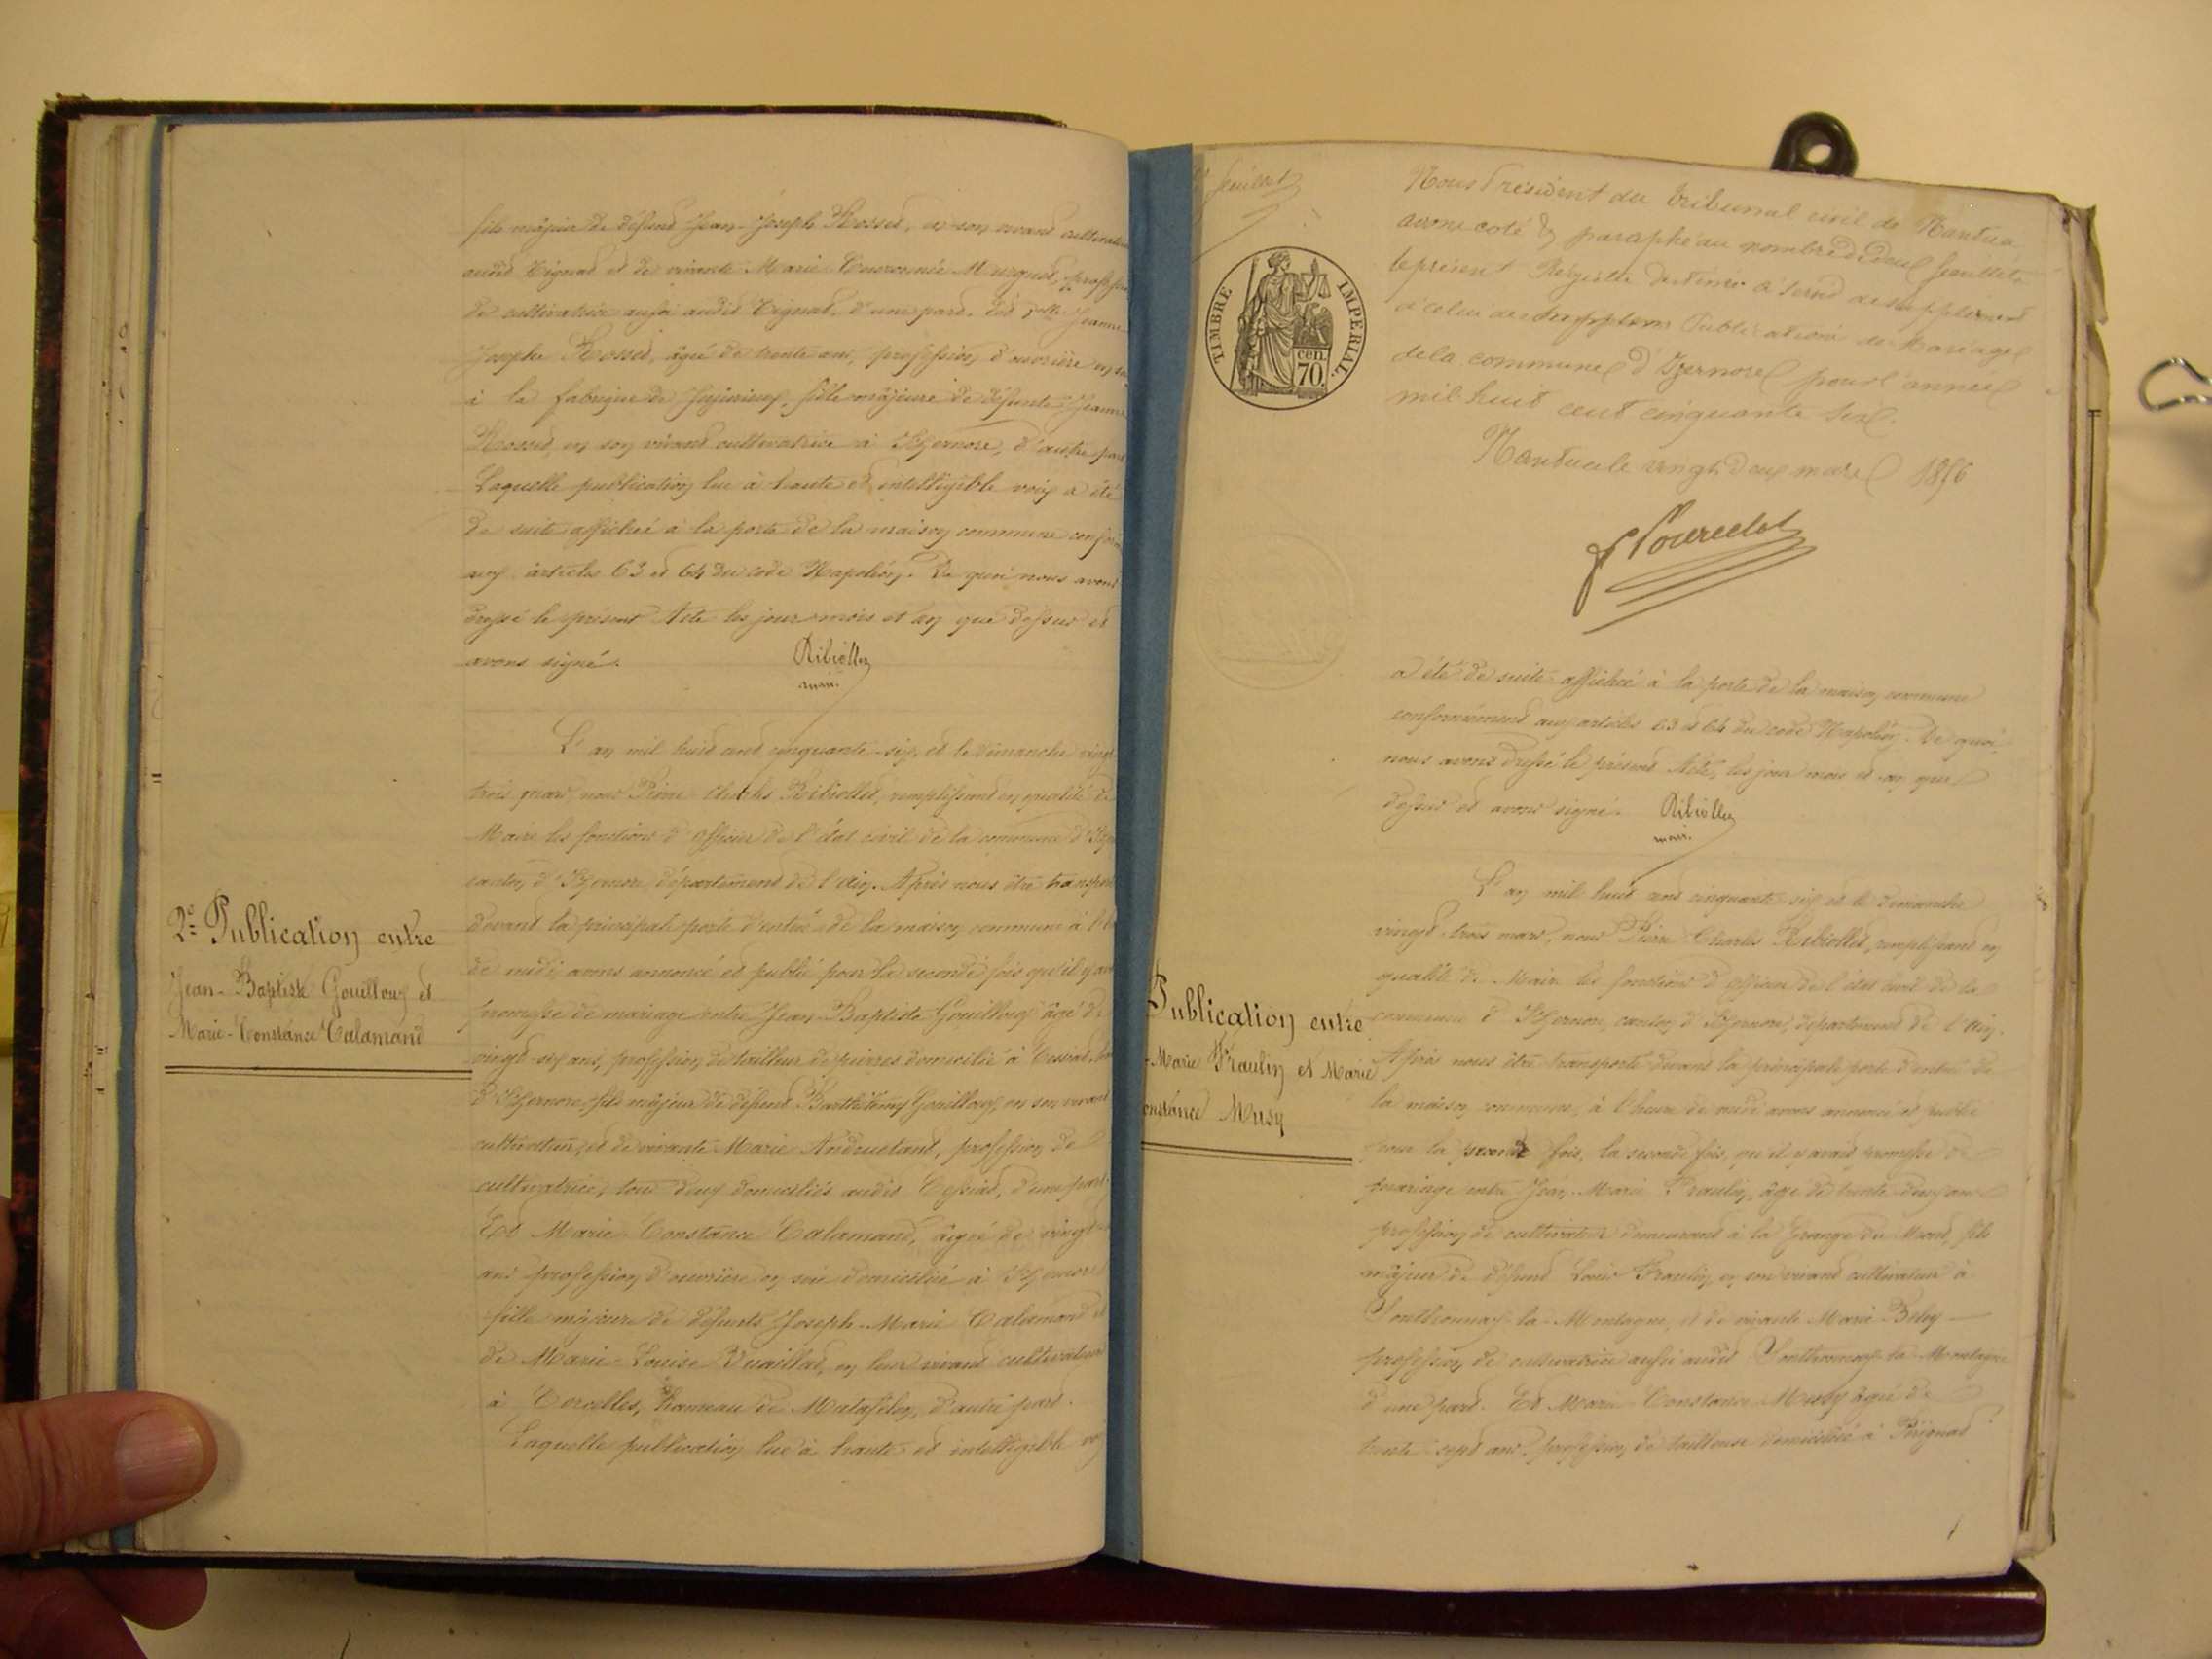 fils majeur de défunt Jean-Joseph Rosset, en son vivant cultivateur
audit Tignat et de vivante Marie Couronnée Murgues, profession
de cultivatrice aussi audit Tignat, d'une part. Et Jeanne
Josephe Rosset, âgée de trente ans, profession d'ouvrière en soie
à la fabrique de Jujurieux, fille majeure de défunte Jeanne
Rosset, en son vivant cultivatrice à Izernore, d'autre part
Laquelle publication lue à haute et intelligible voix a été
de suite affichée à la porte de la maison commune
aux articles 63 et 64 du code Napoléon. De quoi nous avons
dressé le présent Acte les jour mois et an que dessus et
avons signé.
Ribiollet
maire
2e Publication entre
Jean-Baptiste Gouilloux et
Marie-Constance Calamand
L'an mil huit cent cinquante-six, et le dimanche vingt
trois mars, nous Pierre Charles Ribiollet, remplissant en qualité de
Maire les fonctions d'officier de l'état civil de la commune
canton d'Izernore département de l'Ain. Après nous être
devant la principale porte d'entrée de la maison commune à
de midi, avons annoncé et publié pour la seconde fois qu'il y
promesse de mariage entre Jean-Baptiste Gouilloux âgé de
vingt-six ans, profession de tailleur de pierres domicilié à Cessiat,
d'Izernore, fils majeur de défunt Barthélemy Gouilloux, en son vivant
cultivateur, et de vivante Marie, profession de
cultivatrice, tous deux domiciliés audit Cessiat, d'une part.
Et Marie Constance Calamand, âgée de vingt
ans profession d'ouvrière en soie domiciliée à Izernore
fille majeure de défunts Joseph-Marie Calamand et
de Marie-Louise Vuaillat, en leur vivant cultivateurs
à Corcelles, hameau de Matafelon, d'autre part.
Laquelle publication lue à haute et intelligible
feuillet
TIMBRE IMPERIAL.
cen.
70.
Nous Président du tribunal civil de Nantua
avons coté et paraphé au nombre de deux feuillets
le présent Registre destiné à servir de supplément
à celui des Publications de Mariages
de la commune d'Izernore pour l'année
mil huit cent cinquante six.
Nantua le vingt deux mars 1856
a été de suite affichée à la porte de la maison commune
conformément aux articles 63 et 64 du code Napoléon. De quoi
nous avons dressé le présent Acte, les jour mois et an que
dessus et avons signé.
Ribiollet
maire.
Publication entre
-Marie Fraulin et Marie
onstance Musy
L'an mil huit cent cinquante six et le dimanche
vingt-trois mars, nous Pierre Charles Ribiollet, remplissant en
qualité de Maire les fonctions d'officier de l'état civil de la
commune d'Izernore, canton d'Izernore, département de l'Ain.
Après nous être transporté devant la principale porte d'entrée de
la maison commune, à l'heure de midi avons annoncé et publié
pour la fois, la seconde fois, qu'il y avait promesse de
mariage entre Jean-Marie Fraulin, âgé de trente-deux ans
profession de cultivateur demeurant à la Grange du Mont, fils
majeur de défunt Louis Fraulin, en son vivant cultivateur à
Sonthonnax-la-Montagne, et de vivante Marie Beley
profession de cultivatrice aussi audit Sonthonnax-la-Montagne
d'une part. Et Marie-Constance Musy âgée de
trente-sept ans, profession de tailleuse domiciliée à Perignat